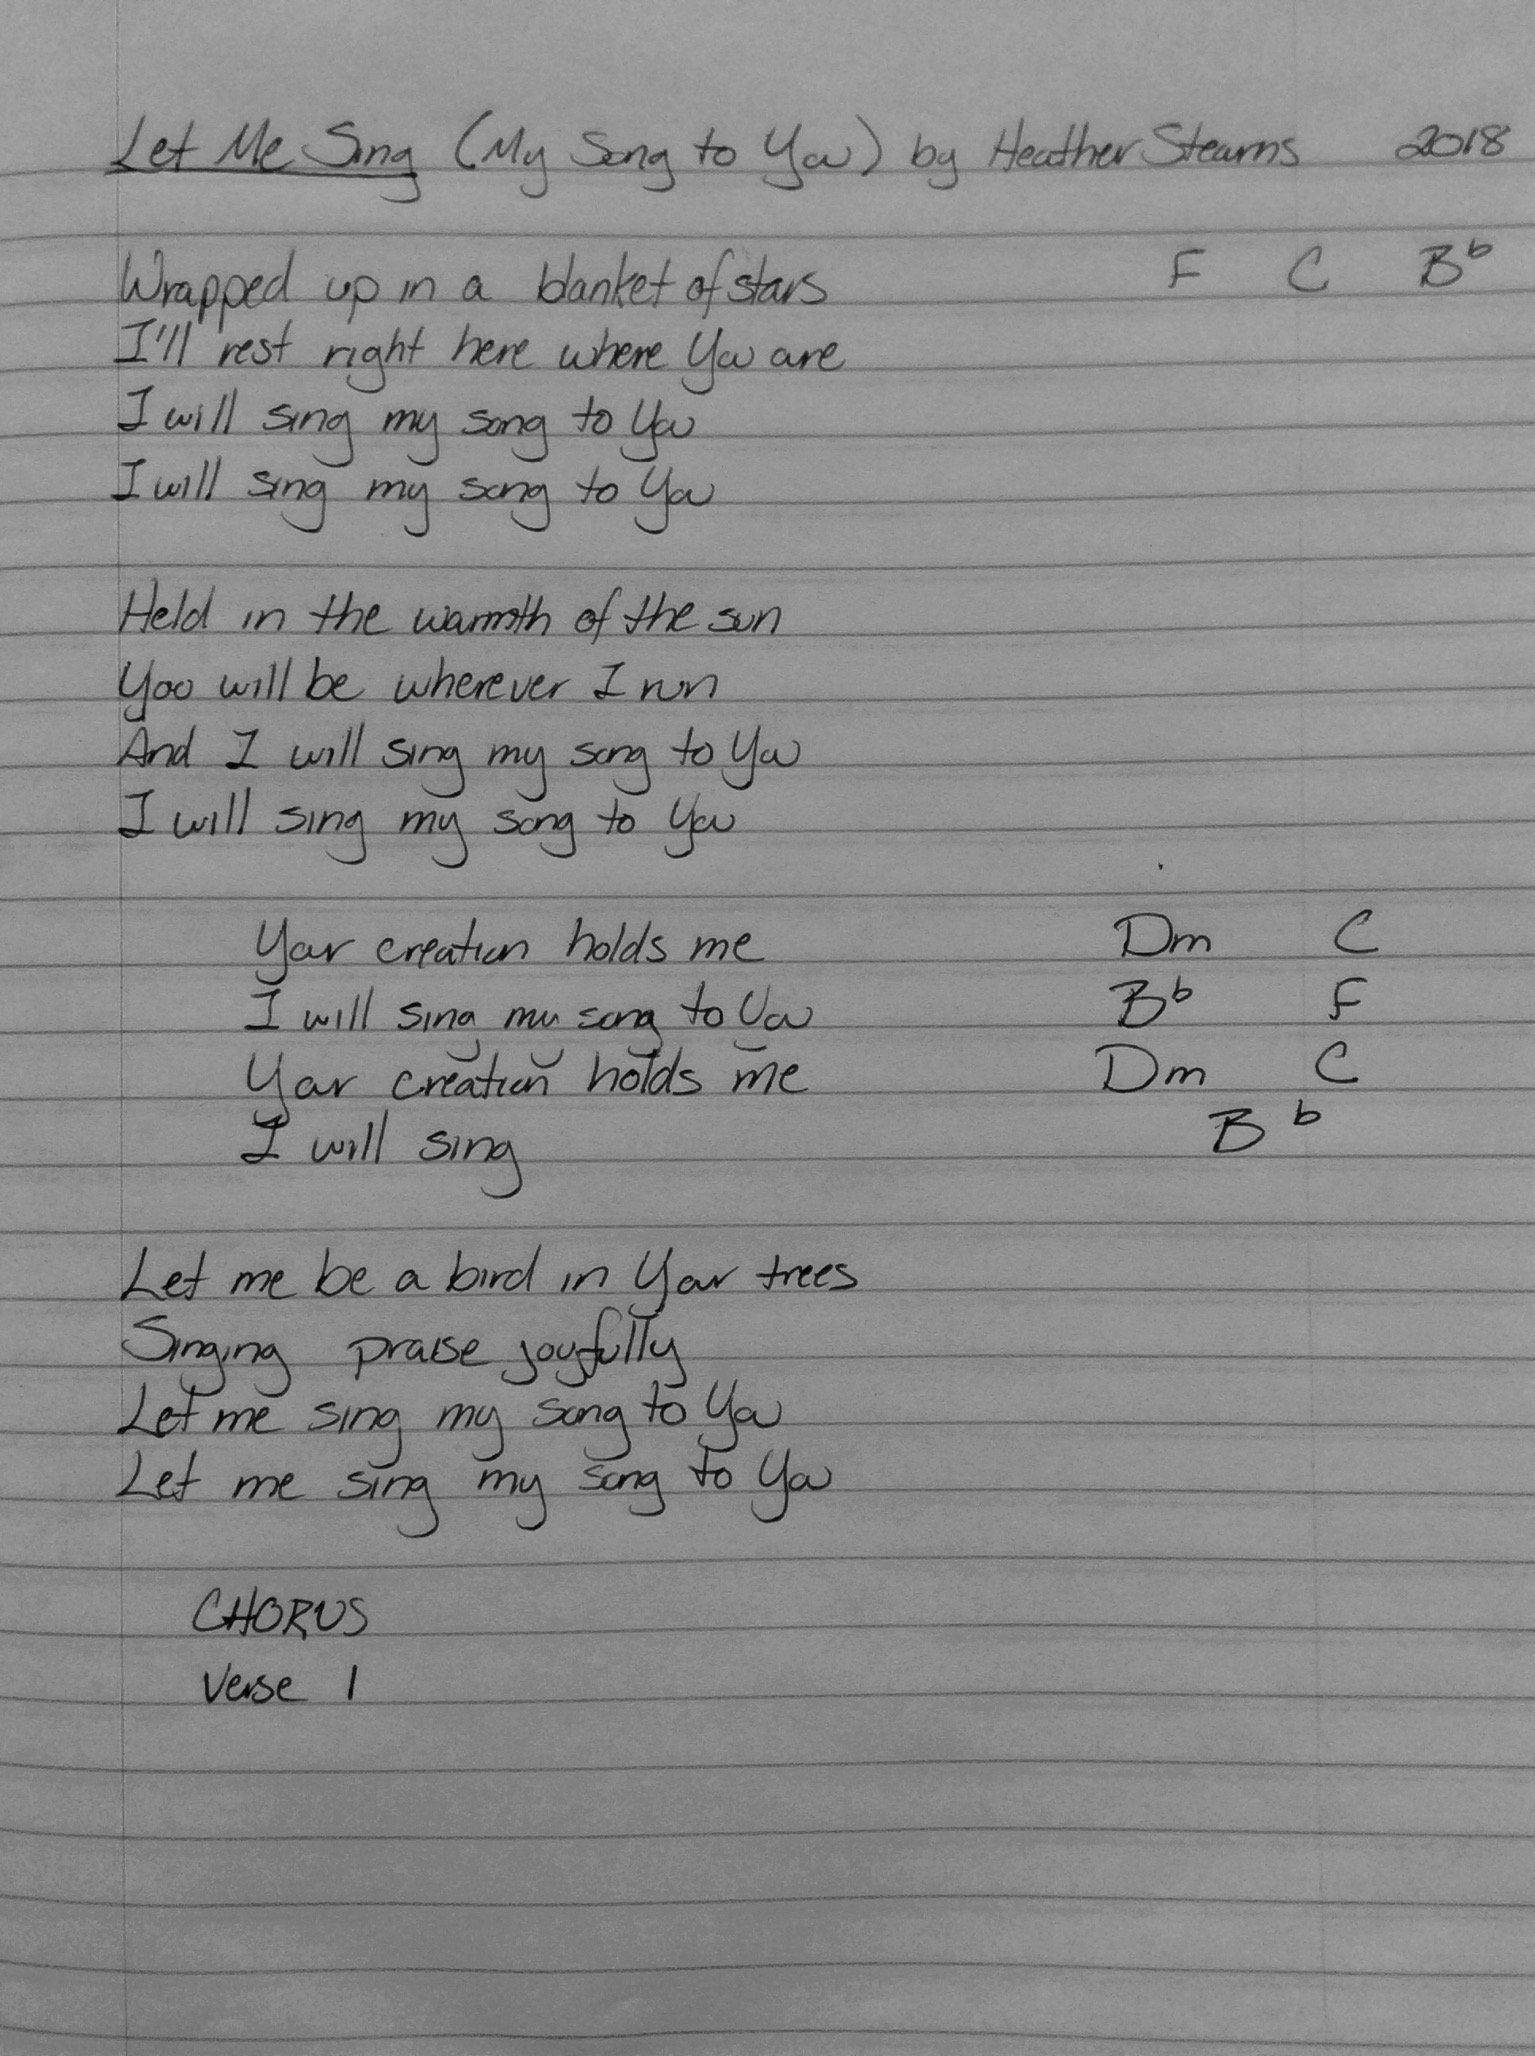 Let Me Sing (My Song to You) by Heather Stearns 2018
Wrapped up in a blanket of stars F C Bb
I'll rest right here where You are
I will sing my song to You
I will sing my song to You
Held in the warmth of the sun
You will be wherever I run
And I will sing my song to You
I will sing my song to You
Your creation holds me Dm C
I will sing my song to You Bb F
Your creation holds me Dm C
I will sing Bb
Let me be a bird in Your trees
Singing praise joyfully
Let me sing my song to You
Let me sing my song to You
CHORUS
Verse 1